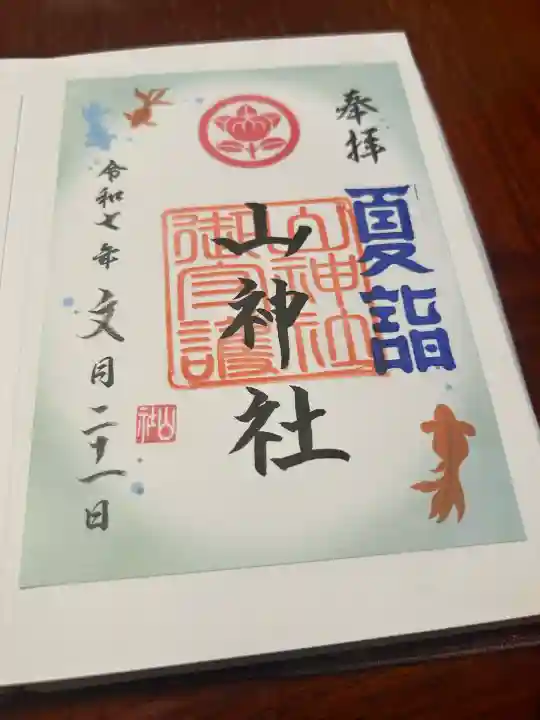 奉拝
夏詣
山神社
山神社
御守護
令和七年文月二十一日
山社